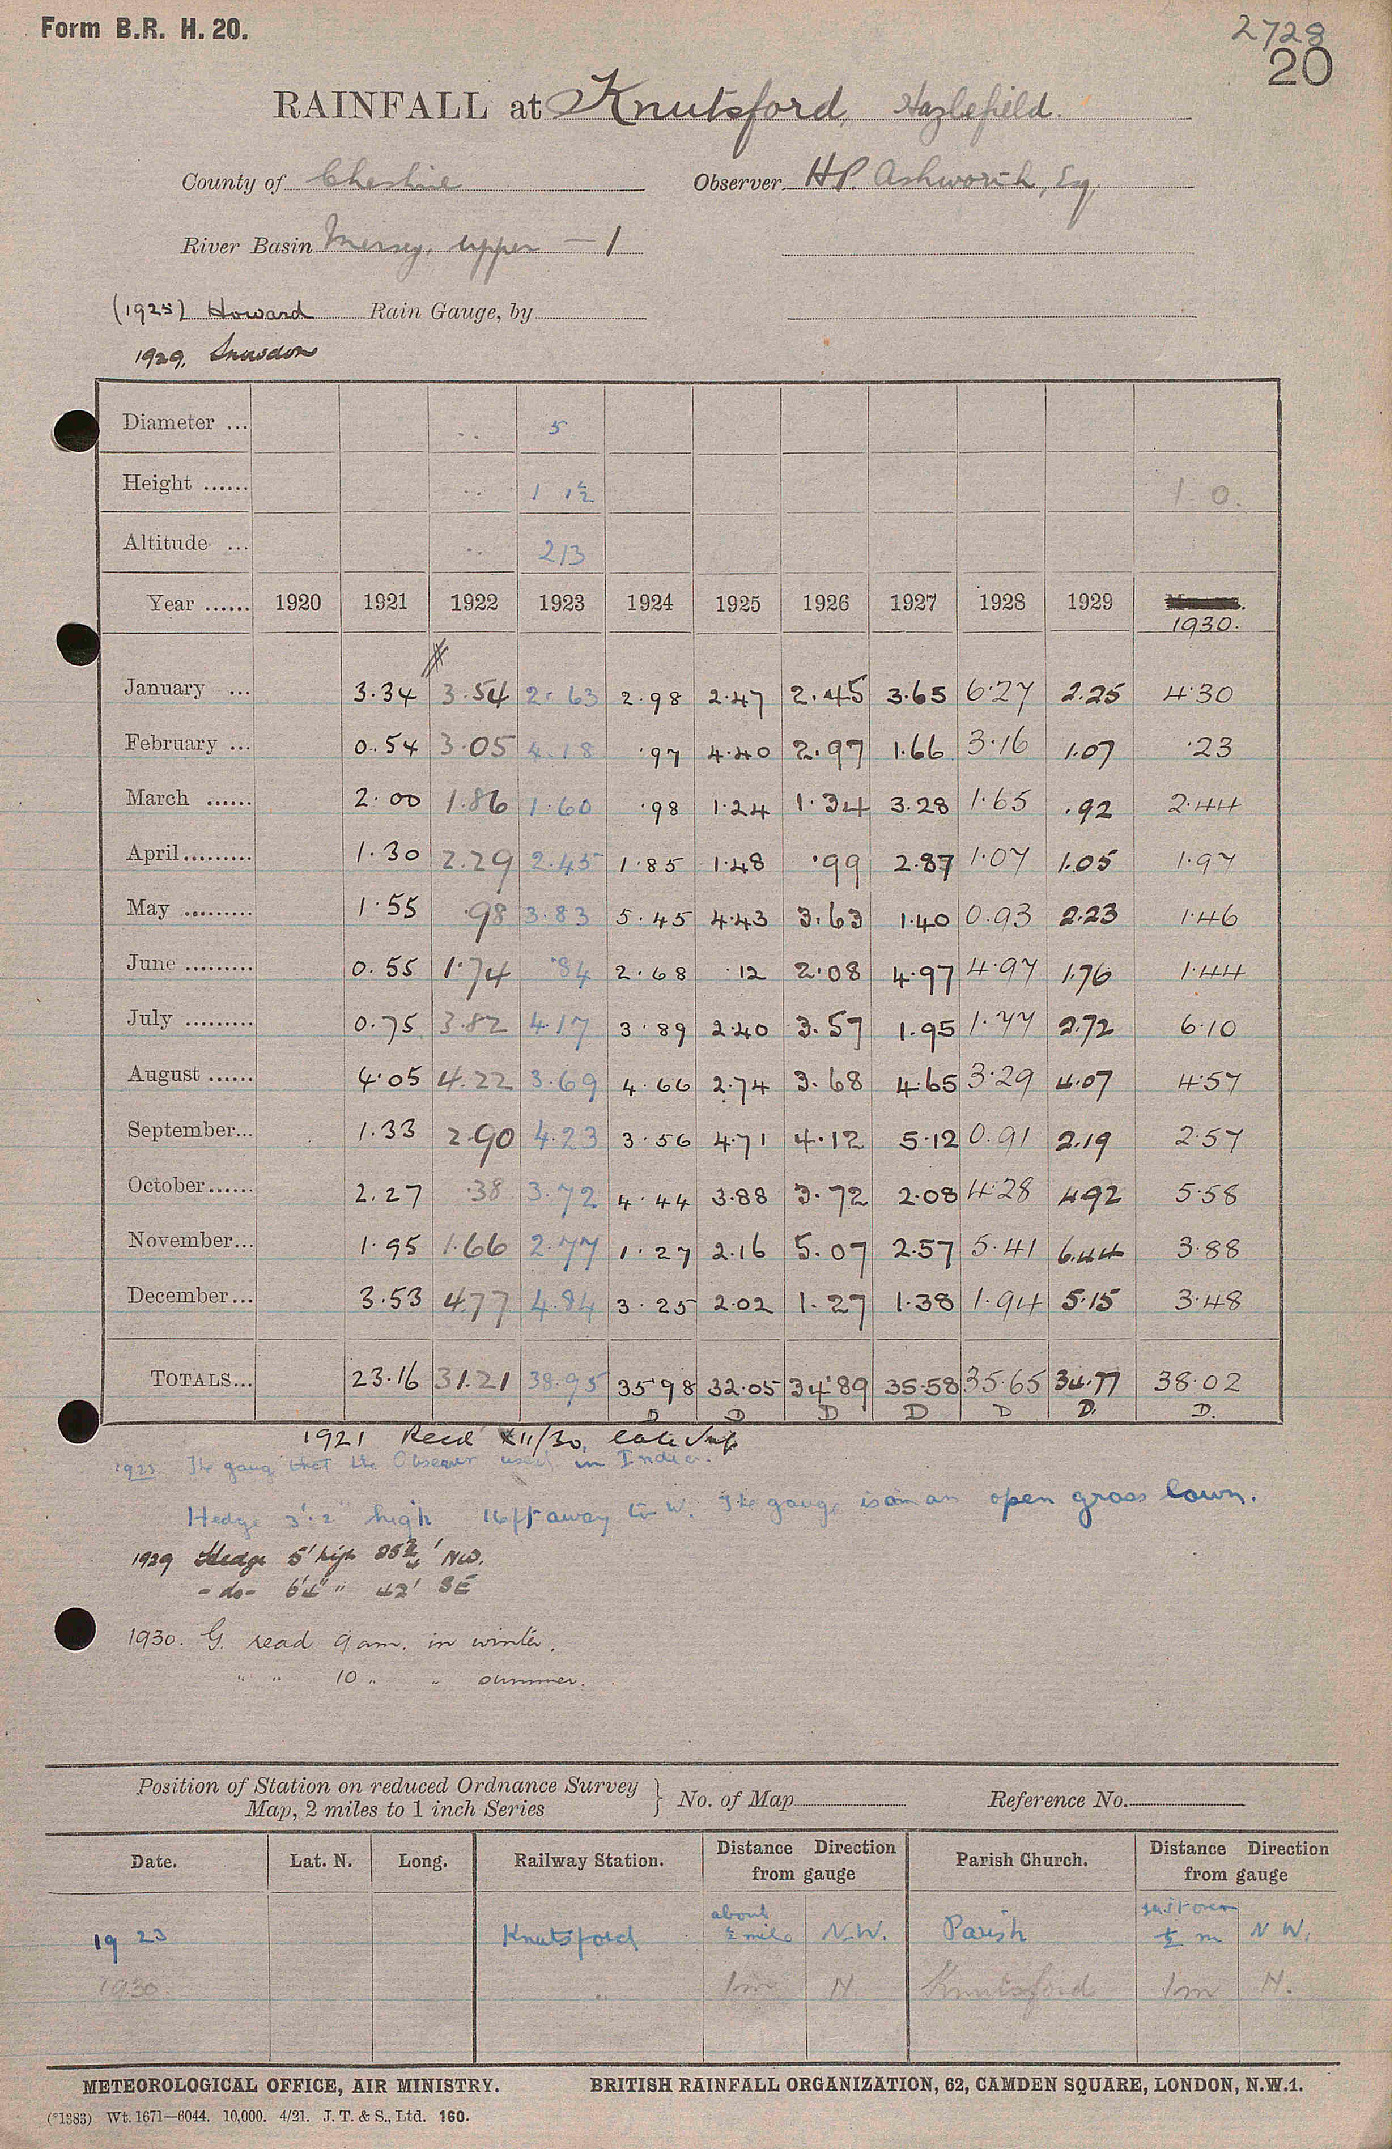 Form B.R. H. 20.
2728
20
RAINFALL at Knutsford, Hazlefield.
County of Cheshire Observer H.P. Ashworth, Esq,
River Basin Mersey, upper — 1
(1925) Howard Rain Gauge, by
1929. Snowdon
Diameter ... 5
Height ...... 1 1½ 1 0.
Altitude ... 213
Year ...... 1920 1921 1922 1923 1924 1925 1926 1927 1928 1929 1930.
January ... 3.34 3.54 2.63 2.98 2.47 2.45 3.65 6.27 2.25 4.30
February ... 0.54 3.05 4.18 .97 4.40 2.97 1.66 3.16 1.07 .23
March ...... 2.00 1.86 1.60 .98 1.24 1.34 3.28 1.65 .92 2.44
April ......... 1.30 2.29 2.45 1.85 1.48 .99 2.87 1.07 1.05 1.97
May ......... 1.55 .98 3.83 5.45 4.43 3.63 1.40 0.93 2.23 1.46
June ......... 0.55 1.74 .84 2.68 .12 2.08 4.97 4.97 1.76 1.44
July ......... 0.75 3.82 4.17 3.89 2.40 3.57 1.95 1.77 2.72 6.10
August ...... 4.05 4.22 3.69 4.66 2.74 3.68 4.65 3.29 4.07 4.57
September... 1.33 2.90 4.23 3.56 4.71 4.12 5.12 0.91 2.19 2.57
October...... 2.27 .38 3.72 4.44 3.88 3.72 2.08 4.28 4.92 5.58
November... 1.95 1.66 2.77 1.27 2.16 5.07 2.57 5.41 6.44 3.88
December... 3.53 4.77 4.84 3.25 2.02 1.27 1.38 1.94 5.15 3.48
TOTALS... 23.16 31.21 38.95 35.98 32.05 34.89 35.58 35.65 34.77 38.02
D D D D D D. D.
1921 Recd XII/30, late
1923 The gauge that the Observer used in India.
Hedge 3'.2 high 16ft away to W. The gauge is on an open grass lawn.
1929 Hedge 5' high NW.
- do - 6'4" " 42' SE
1930. G. read 9 am. in winter.
" " 10 " " summer.
Position of Station on reduced Ordnance Survey Map, 2 miles to 1 inch Series } No. of Map Reference No.
Date. Lat. N. Long. Railway Station. Distance Direction from gauge Parish Church. Distance Direction from gauge
1923 Knutsford about ½ mile N.W. Parish just over ½ m N W.
1930. " 1m N Knutsford 1m N.
METEOROLOGICAL OFFICE, AIR MINISTRY. BRITISH RAINFALL ORGANIZATION, 62, CAMDEN SQUARE, LONDON, N.W.1.
(*1383) Wt. 1671—6044. 10,000. 4/21. J. T. & S., Ltd. 160.